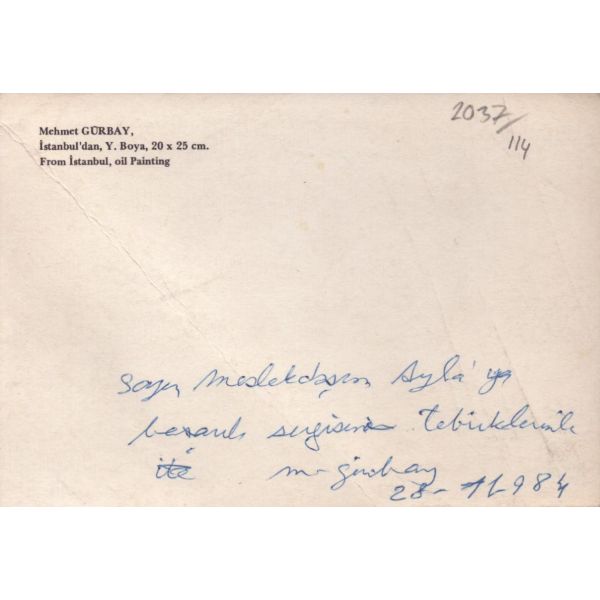 Mehmet GÜRBAY,
İstanbul'dan, Y. Boya, 20 x 25 cm.
From İstanbul, oil Painting
2037/114
Sayın Meslekdaşım Ayla'ya
başarılı sergisini tebriklerimle
ile m-gürbay
28-11-984